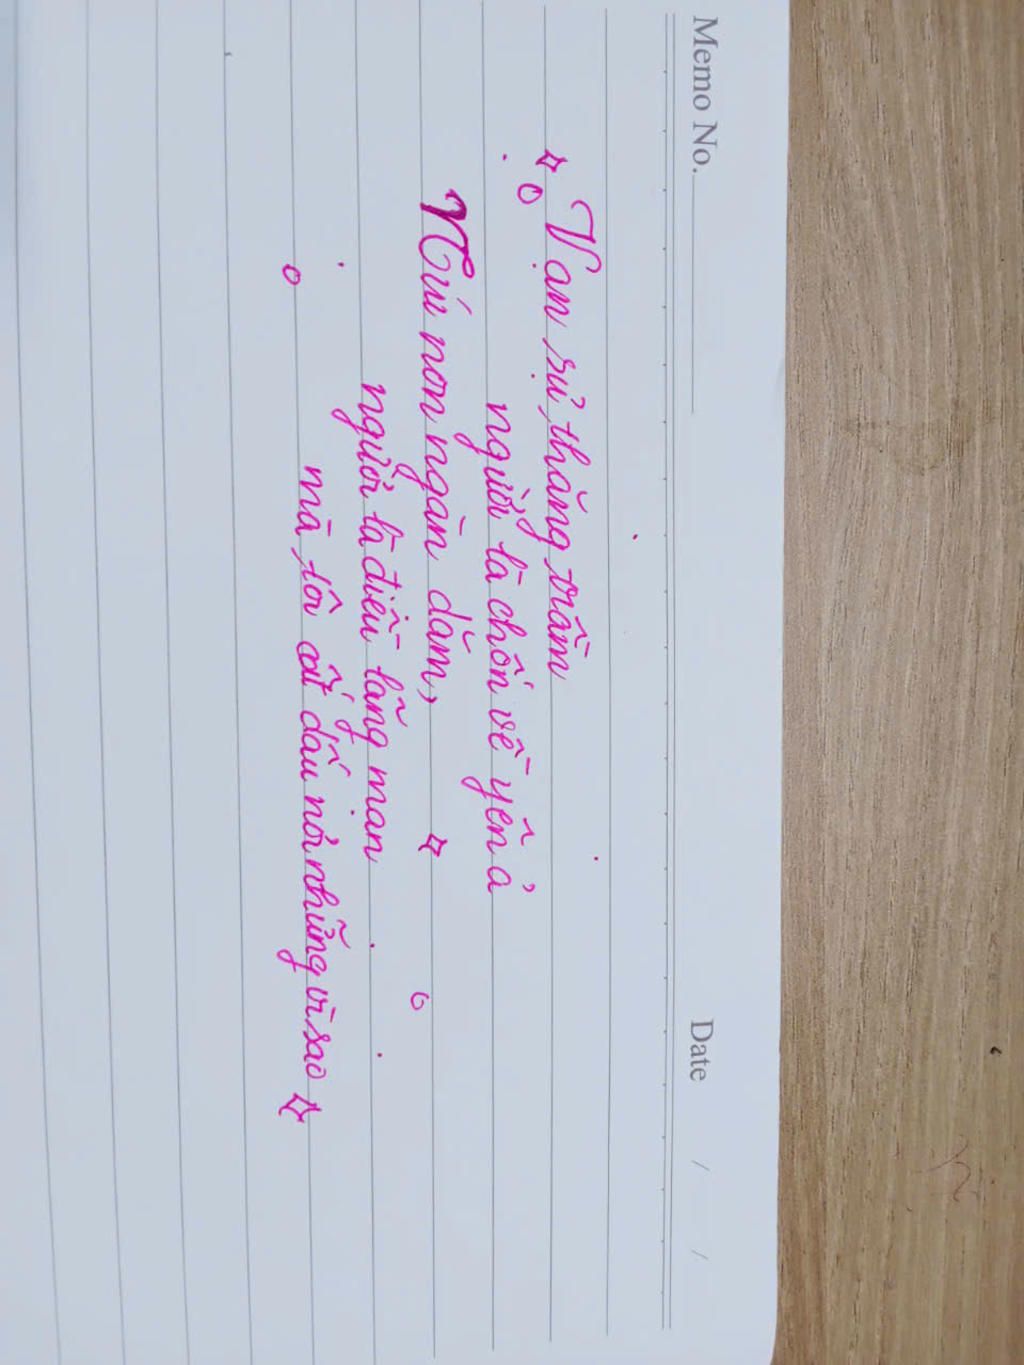 Memo No. Date / /
Vạn sự thăng trầm
người là chốn về yên ả
Núi non ngàn dặm,
người là điều lãng mạn
mà tôi cất dấu nơi những vì sao